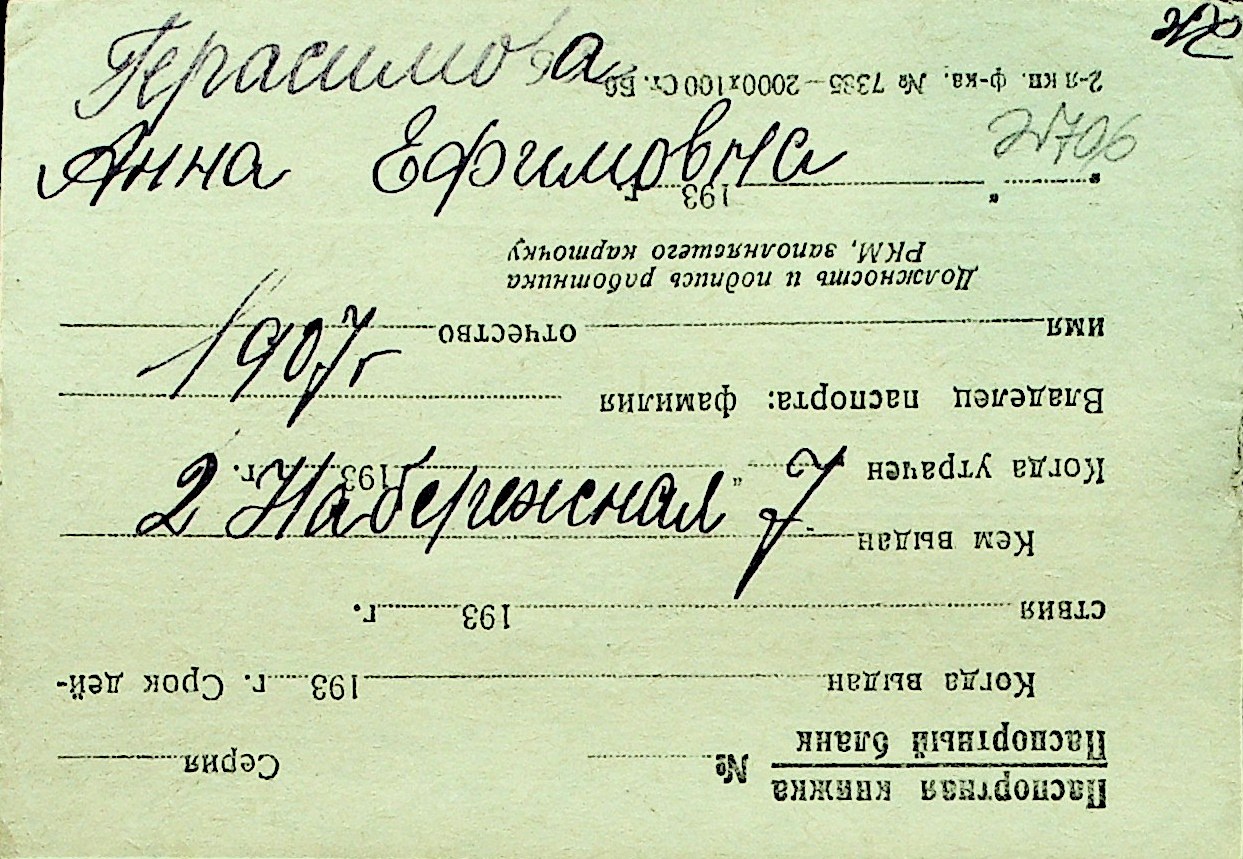 Герасимова
Анна Ефимовна
1907 г
2 Набережная 7
Паспортная книжка
Паспортный бланк № Серия
Когда выдан 193 г. Срок дей-
ствия 193 г.
Кем выдан
Когда утрачен " 193 г.
Владелец паспорта: фамилия
имя отчество
Должность и подпись работника
РКМ, заполнявшего карточку
" " 193 г.
2-я кп. ф-ка. № 7385—2000х100 Ст. Бб